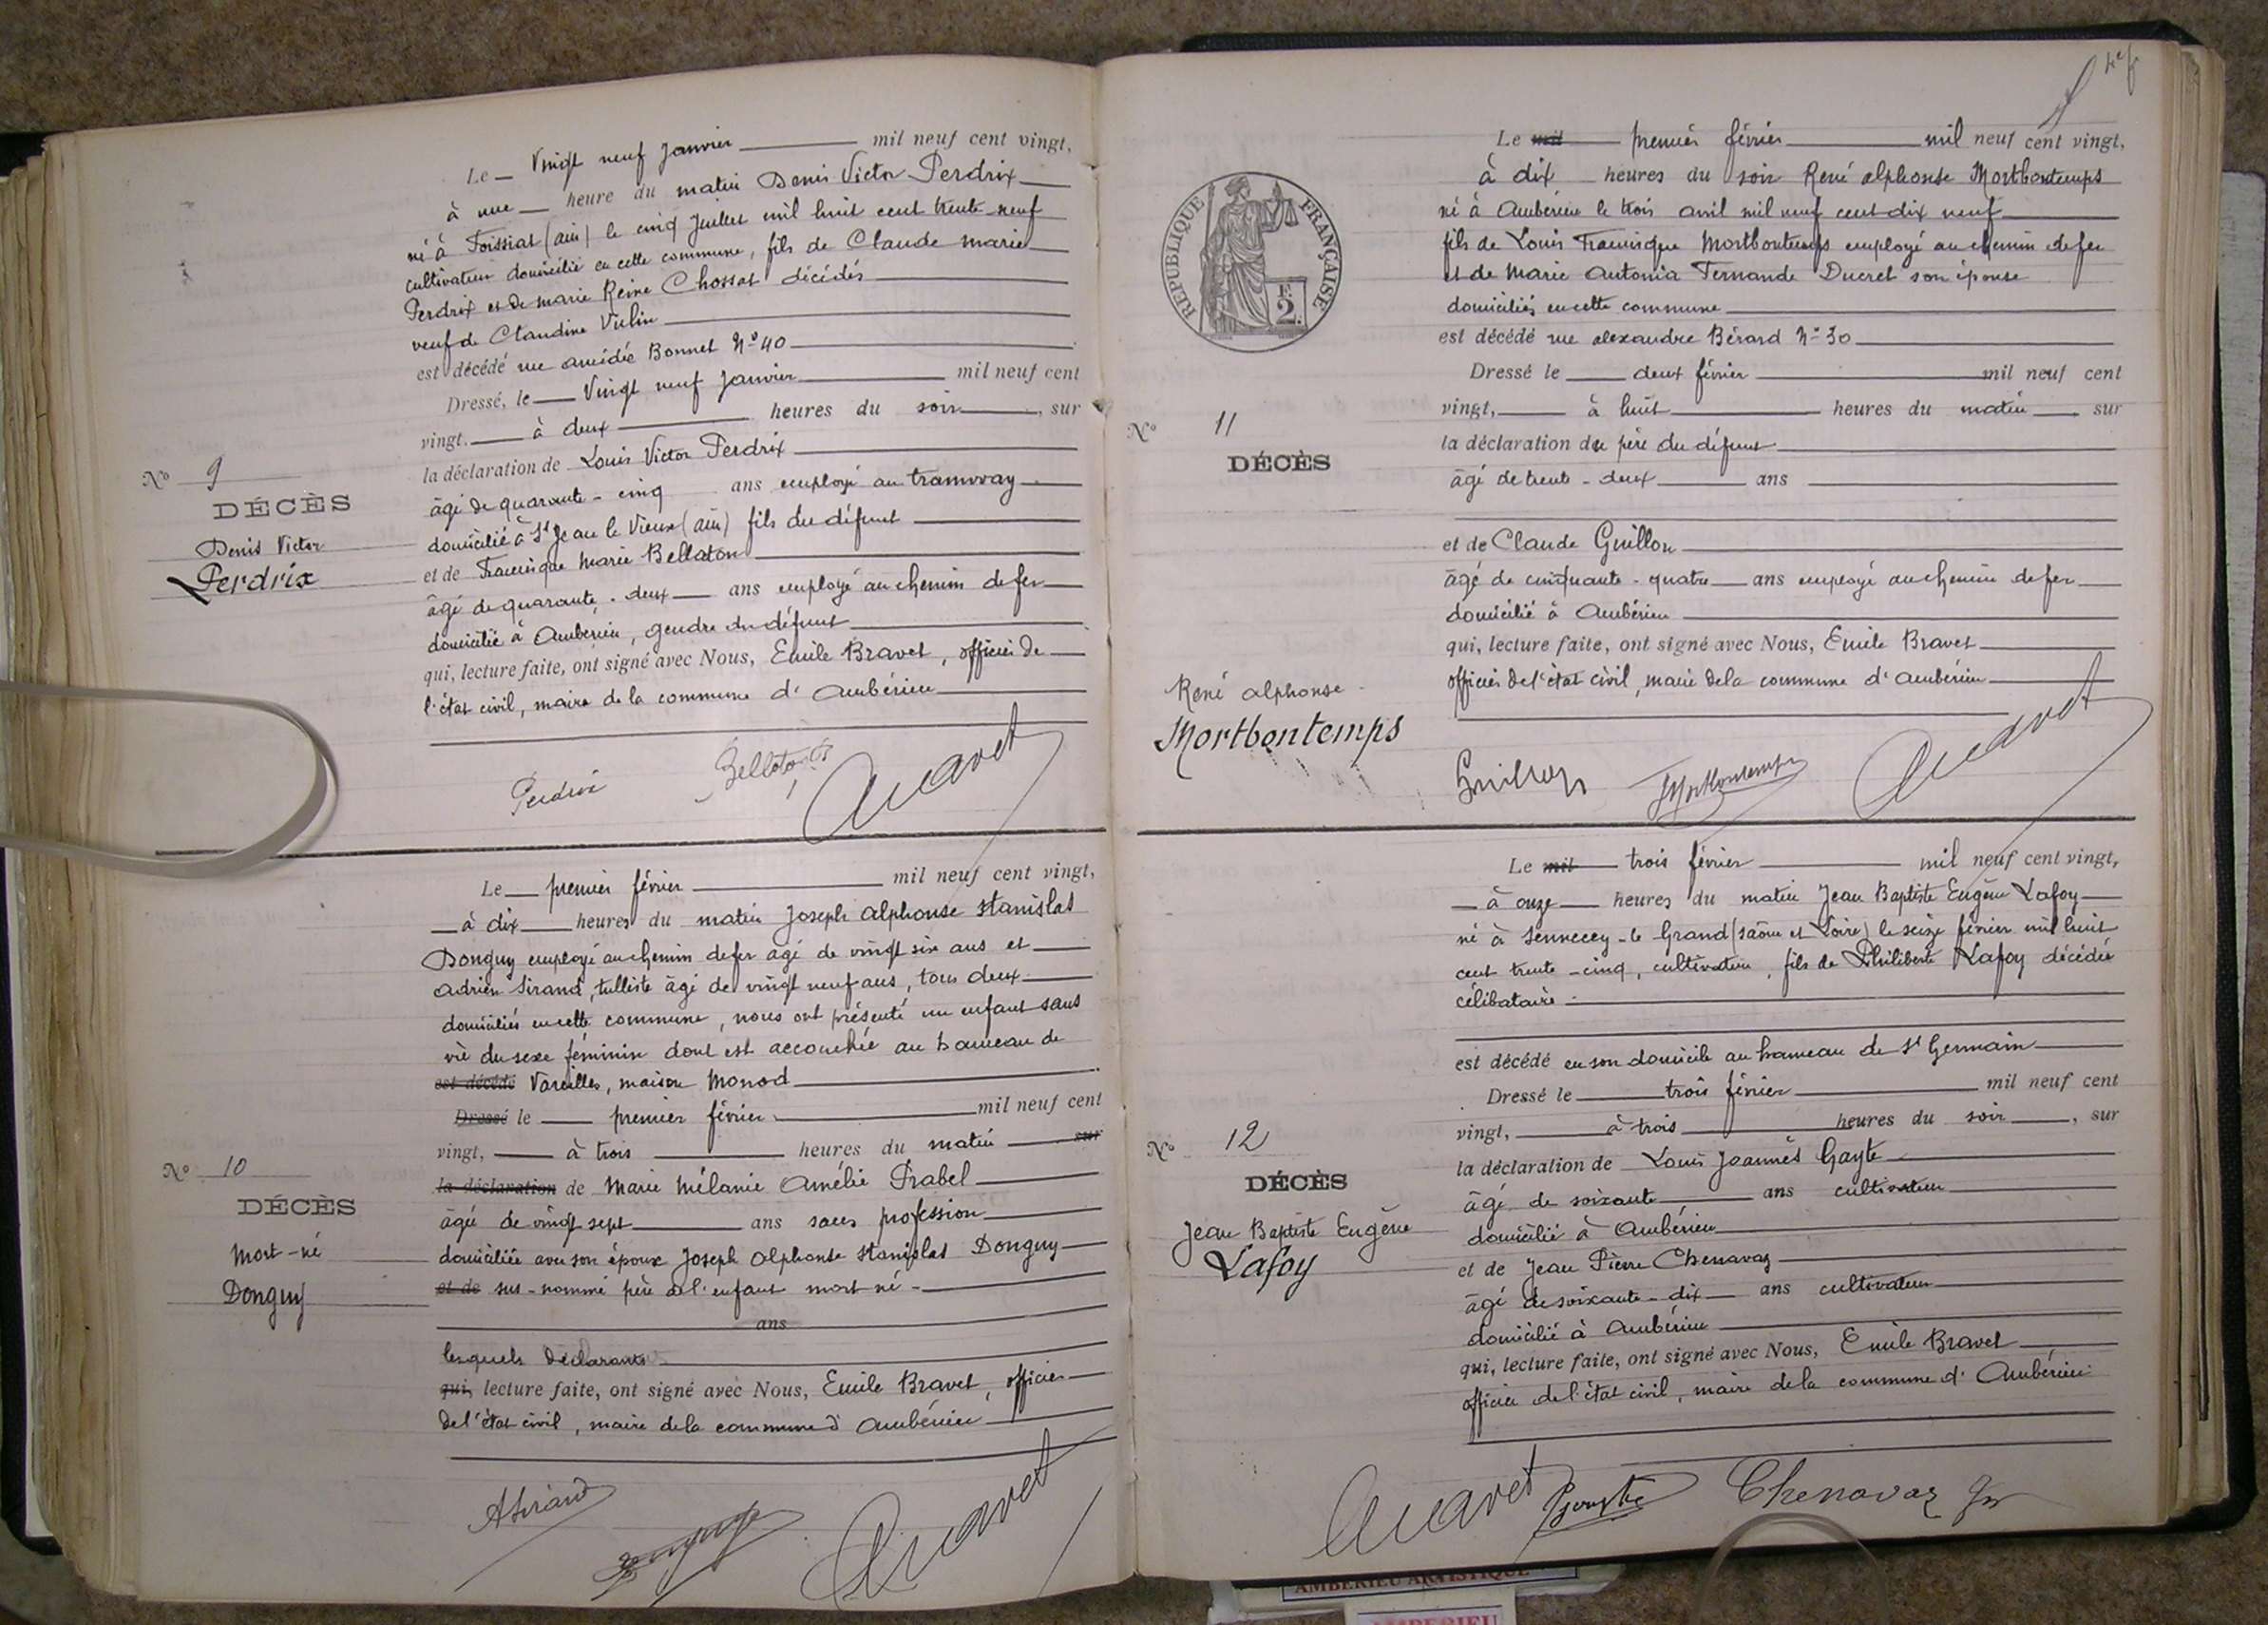 Le Vingt neuf Janvier mil neuf cent vingt,
à une heure du matin Denis Victor Perdrix
né à Foissiat (ain) le cinq Juillet mil huit cent trente-neuf
cultivateur domicilié en cette commune, fils de Claude marie
Perdrix et de marie Reine Chossat décédés
veuf de Claudine Vulin
est décédé rue amédée Bonnet N° 40
Dressé, le Vingt neuf Janvier mil neuf cent
vingt, à deux heures du soir, sur
la déclaration de Louis Victor Perdrix
âgé de quarante-cinq ans employé au tramway
domicilié à St Jean le Vieux (ain) fils du défunt
et de Francisque Marie Bellaton
âgé de quarante-deux ans employé au chemin de fer
domicilié à Ambérieu, gendre du défunt
qui, lecture faite, ont signé avec Nous, Emile Bravet, officier de
l'état civil, maire de la commune d'Ambérieu
N° 9
DÉCÈS
Denis Victor
Perdrix
Perdrix
Le premier février mil neuf cent vingt,
à dix heures du matin Joseph alphonse Stanislas
Donguy employé au chemin de fer âgé de vingt six ans et
adrien Sirand, tulliste âgé de vingt neuf ans, tous deux
domiciliés en cette commune, nous ont présenté un enfant sans
vie du sexe féminin dont est accouchée au hameau de
est décédé Vareilles, maison Monod
Dressé le premier février mil neuf cent
vingt, à trois heures du matin sur
la déclaration de Marie Mélanie Amélie Prabel
âgée de vingt sept ans sans profession
domiciliée avec son époux Joseph Alphonse Stanislas Donguy
et de sus-nommé père de l'enfant mort né
ans
lesquels déclarants
qui, lecture faite, ont signé avec Nous, Emile Bravet, officier
de l'état civil, maire de la commune d'Ambérieu
N° 10
DÉCÈS
Mort-né
Donguy
ASirand
RÉPUBLIQUE FRANÇAISE
2 F.
Le mil premier février mil neuf cent vingt,
à dix heures du soir René alphonse Mortbontemps
né à Ambérieu le trois avril mil neuf cent dix neuf
fils de Louis Francisque Mortbontemps employé au chemin de fer
et de Marie Antonia Fernande Ducret son épouse
domiciliés en cette commune
est décédé rue alexandre Bérard N° 30
Dressé le deux février mil neuf cent
vingt, à huit heures du matin sur
la déclaration du père du défunt
âgé de trente-deux ans
et de Claude Guillon
âgé de cinquante-quatre ans employé au chemin de fer
domicilié à Ambérieu
qui, lecture faite, ont signé avec Nous, Emile Bravet
officier de l'état civil, maire de la commune d'Ambérieu
N° 11
DÉCÈS
René alphonse
Mortbontemps
Guillon Mortbontemps
Le mil trois février mil neuf cent vingt,
à onze heures du matin Jean Baptiste Eugène Lafoy
né à Sennecey-le Grand (Saône et Loire) le seize février mil huit
cent trente-cinq, cultivateur, fils de Philiberte Lafoy décédée
célibataire
est décédé en son domicile au hameau de St Germain
Dressé le trois février mil neuf cent
vingt, à trois heures du soir, sur
la déclaration de Louis Joannès Gayte
âgé de soixante ans cultivateur
domicilié à Ambérieu
et de Jean Pierre Chenavaz
âgé de soixante-dix ans cultivateur
domicilié à Ambérieu
qui, lecture faite, ont signé avec Nous, Emile Bravet
officier de l'état civil, maire de la commune d'Ambérieu
N° 12
DÉCÈS
Jean Baptiste Eugène
Lafoy
Chenavaz
AMBERIEU ARTISTIQUE
AMBERIEU